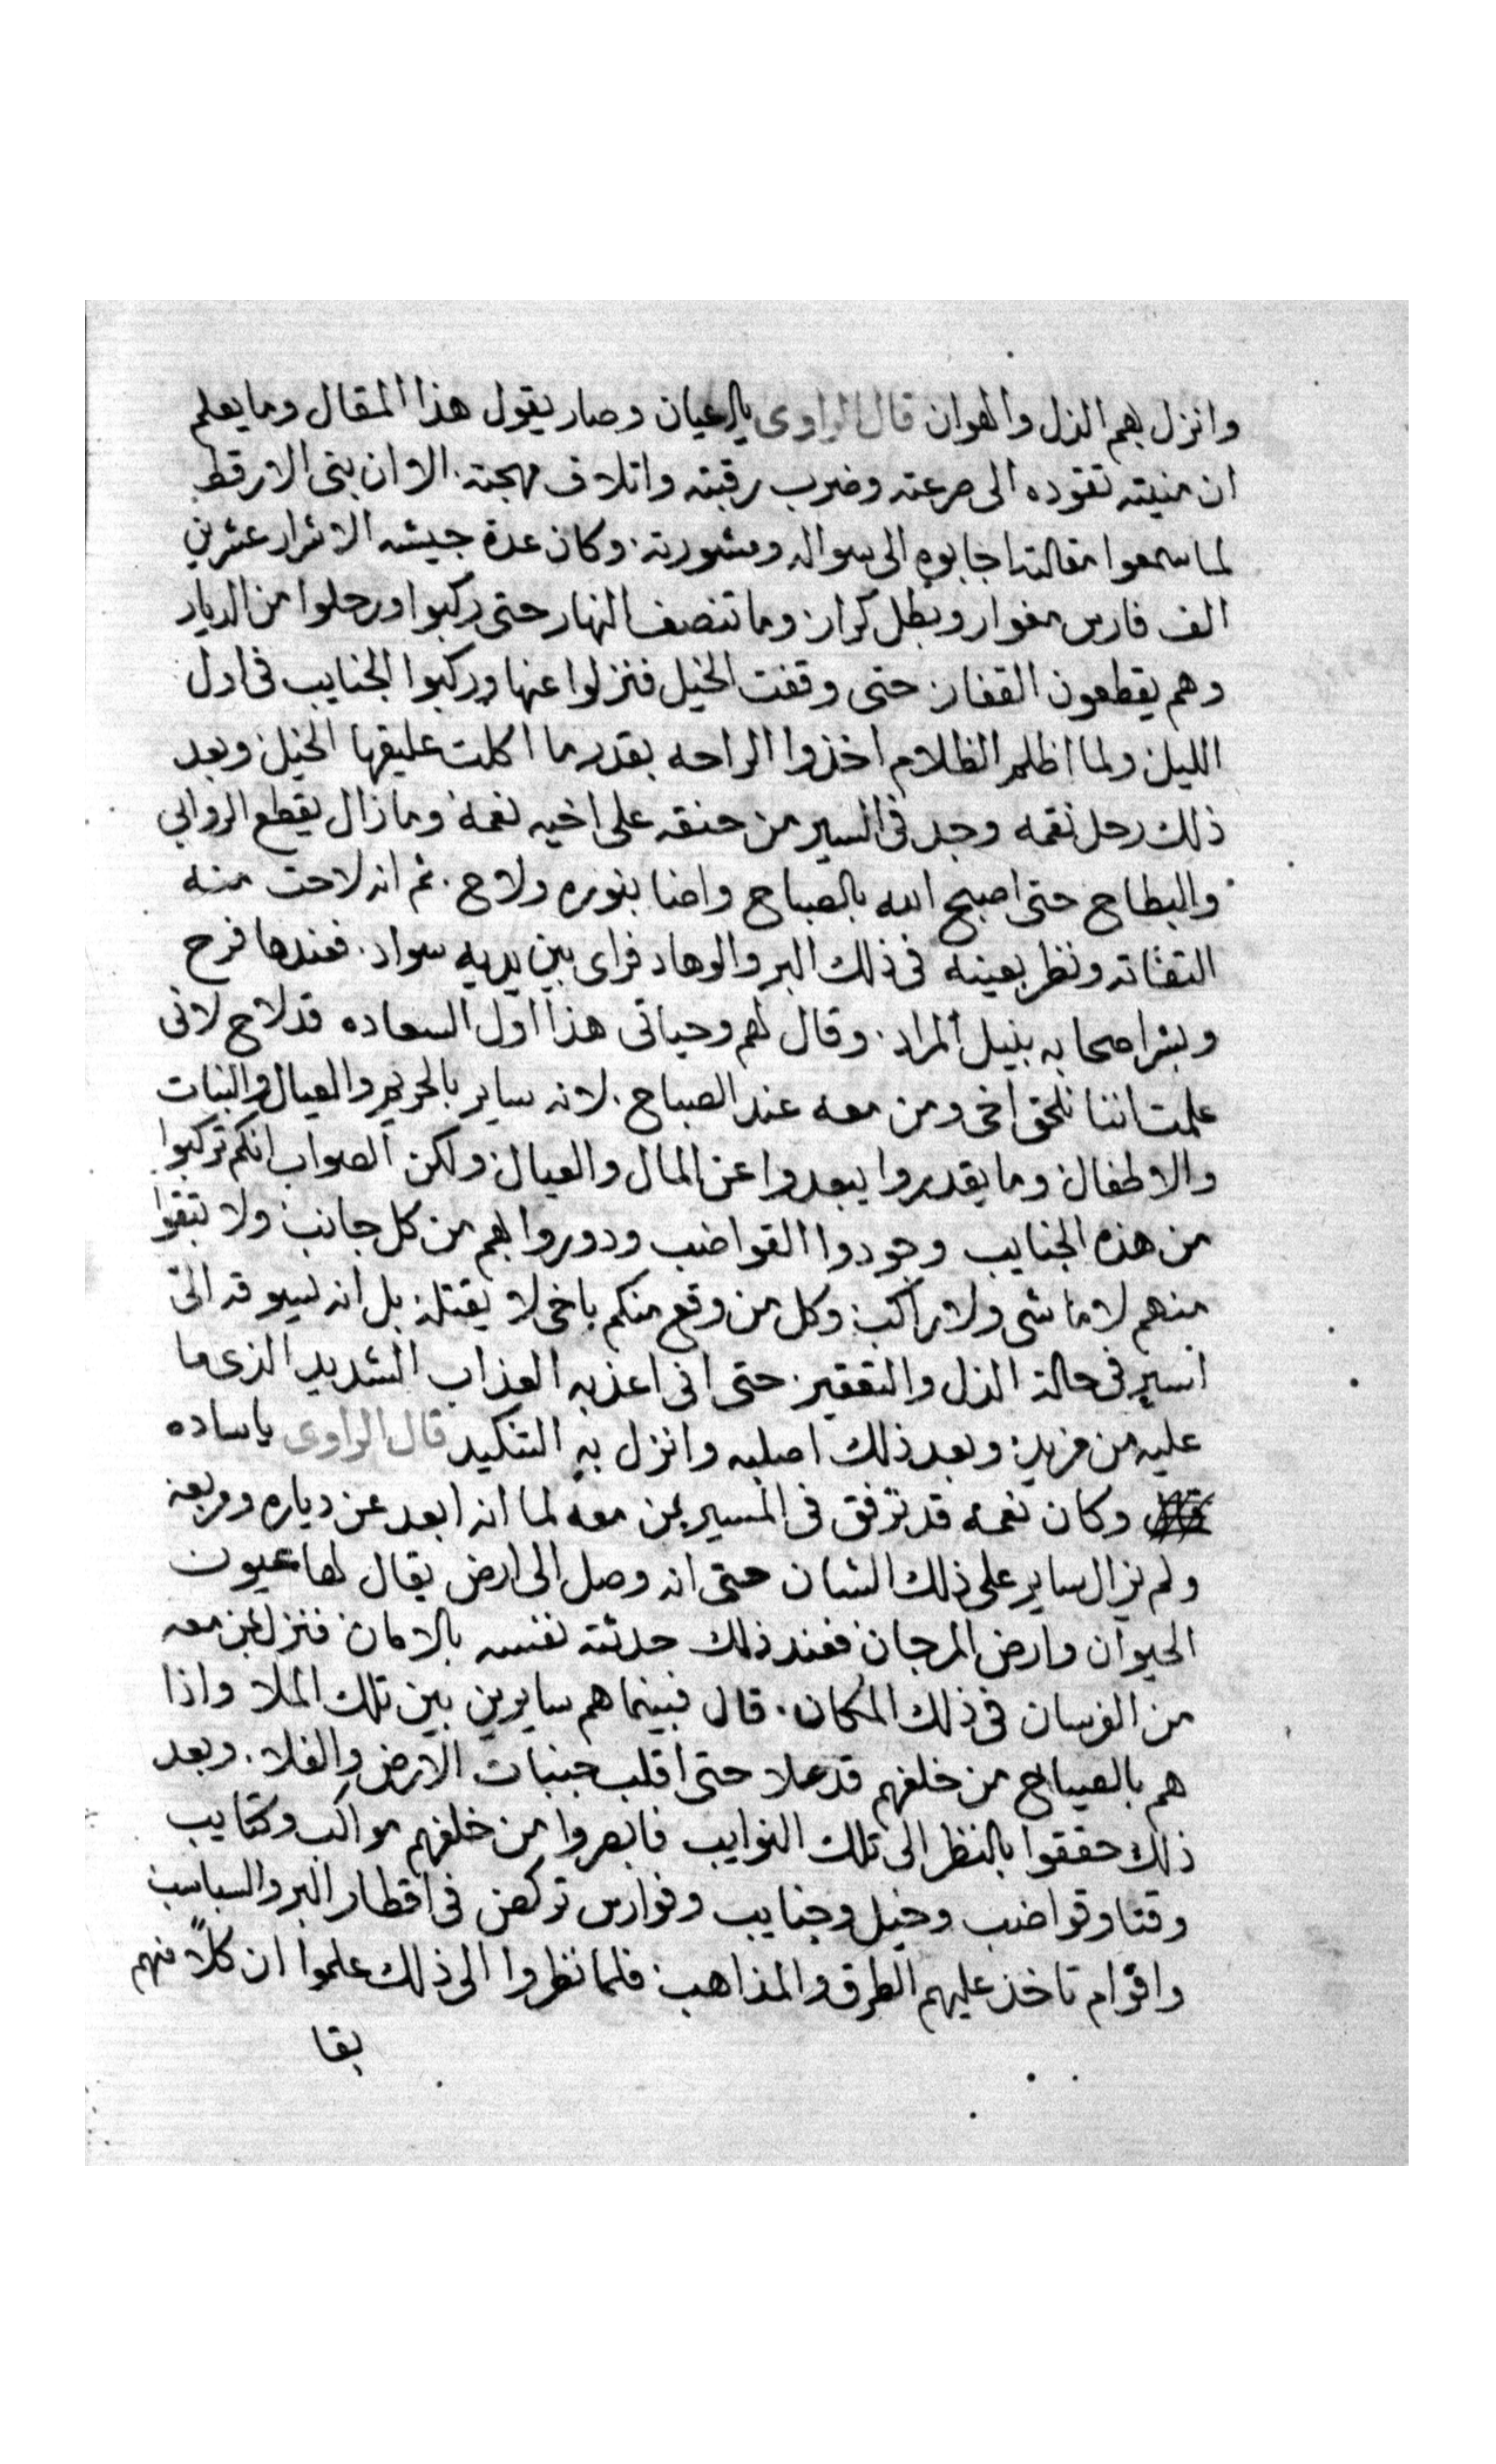 وانزل بهم الذل والهوان قال الراوى يالرعيان وصار يقول هذا المقال وما يعلم
ان منيته تقوده الى صرعته وضرب رقبته واتلاف مهجته. الا ان بنى الارقط
لما سمعوا مقالته اجابوه الى سواله ومشورته. وكان عدة جيشه الاشرار عشرين
الف فارس مغوار وبطل كرار. وما تنصف النهار حتى ركبوا ورحلوا من الديار
وهم يقطعون القفار. حتى وقفت الخيل فنزلوا عنها وركبوا الجنايب فى اول
الليل. ولما اظلم الظلام اخذوا الراحه بقدر ما اكلت عليقها الخيل. وبعد
ذلك رحل نقمه وجد فى السير من حنقه على اخيه نعمة. وما زال يقطع الروابي
والبطاح. حتى اصبح الله بالصباح واضا بنوره ولاح. ثم انه لاحت منه
التفاته ونظر بعينه فى ذلك البر والوهاد فراى بين يديه سواد. فعندها فرح
وبشر اصحابه بنيل المراد. وقال لهم وحياتى هذا اول السعاده قد لاح لانى
علمت اننا نلحق اخى ومن معه عند الصباح. لانه ساير بالحريم والعيال والبنات
والاطفال. وما يقدروا يبعدوا عن المال والعيال. ولكن الصواب انكم تركبوا
من هذه الجنايب وجودوا القواضب ودوروا بهم من كل جانب. ولا تبقوا
منهم لا ماشى ولا راكب. وكل من وقع منكم باخى لا يقتله. بل انه يسوقه الىّ
اسير فى حالة الذل والتعقير. حتى انى اعذبه العذاب الشديد الذى ما
عليه من مزيد. وبعد ذلك اصلبه وانزل به التنكيد قال الراوى يا ساده
وكان نعمه قد ترفق فى المسير بمن معه لما انه ابعد عن دياره وربعه
ولم يزال ساير على ذلك الشان حتى انه وصل الى ارض يقال لها عيون
الحيوان وارض المرجان. فعند ذلك حدثته نفسه بالامان. فنزل بمن معه
من الفرسان فى ذلك المكان. قال فبينما هم سايرين بين تلك الملا واذا
هم بالصياح من خلفهم قد علا حتى اقلب جنبات الارض والفلا. وبعد
ذلك حققوا بالنظر الى تلك النوايب فابصروا من خلفهم مواكب وكتايب
وقنا وقواضب وخيل وجنايب وفوارس تركض فى اقطار البر والسباسب
واقوام تاخذ عليهم الطرق والمذاهب. فلما نظروا الى ذلك علموا ان كلاً منهم
بقا